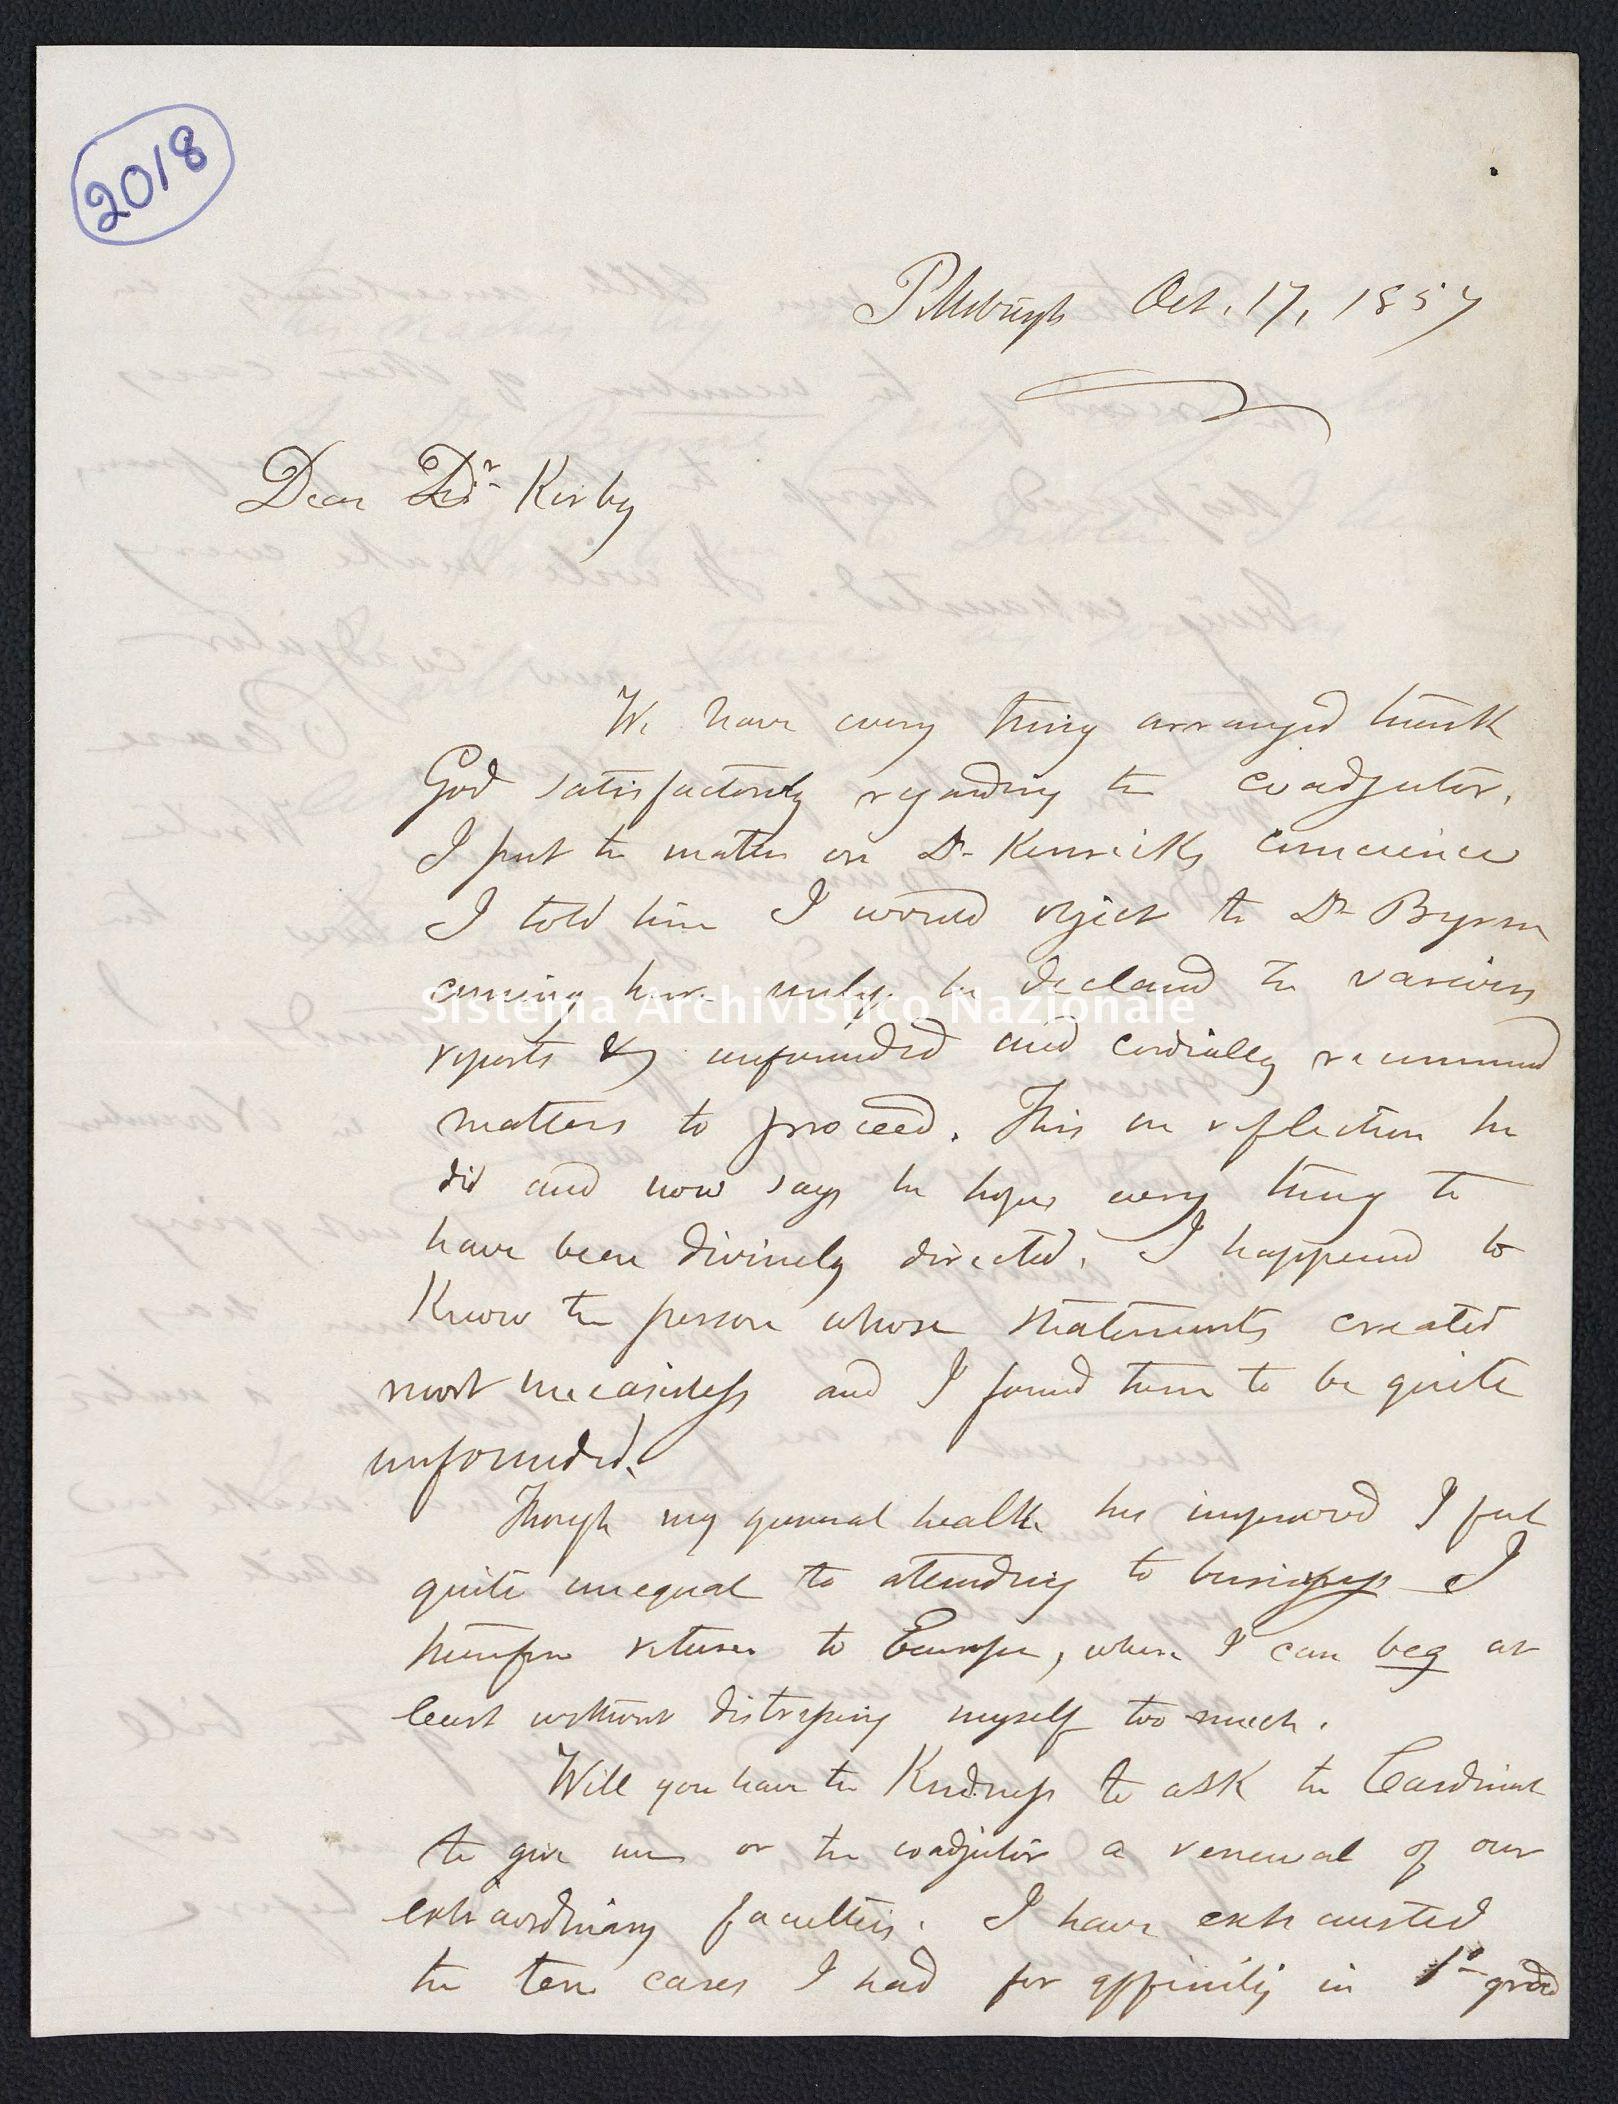 2018
Pittsburgh Oct. 17, 1857
Dear Dr Kirby
We have every thing arranged thank
God satisfactorily regarding the coadjutor.
I put the matter on Dr Kenricks conscience
I told him I would object to Dr Byrne
coming here unless he declared the various
reports unfounded and cordially recommend
matters to proceed. This on reflection he
did and now says he hopes every thing to
have been divinely directed. I happened to
Know the person whose statements created
most uneasiness and I found them to be quite
unfounded.
Though my general health has improved I feel
quite unequal to attending to business I
therefore return to Europe, where I can beg at
least without distressing myself too much.
Will you have the Kindness to ask the Cardinal
to give me or the coadjutor a renewal of our
extraordinary faculties. I have exhausted
the ten cases I had for affinity in 1o grad
Sistema Archivistico Nazionale